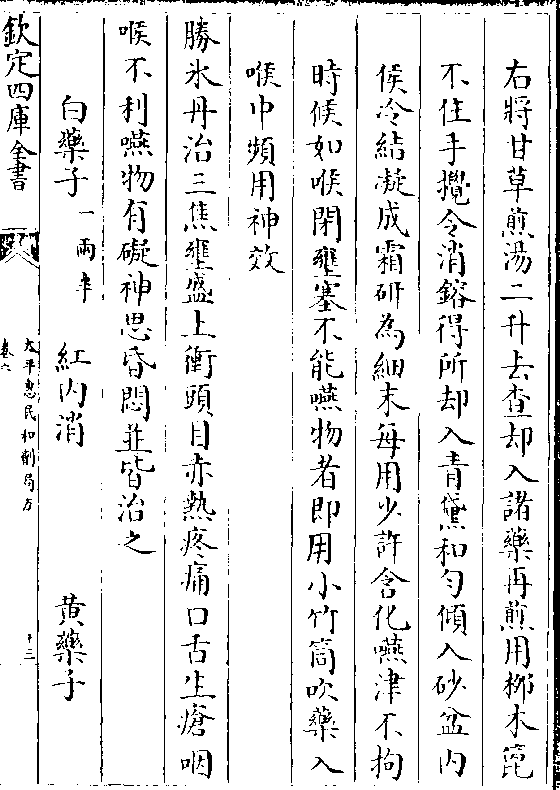 右將甘草煎湯二升去查却入諸藥再煎用栁木箆
不住手攪令消鎔得所却入青黛和勻傾入砂盆内
候冷結凝成霜研為細末每用少許含化嚥津不拘
時候如喉閉壅塞不能嚥物者即用小竹筒吹藥入
喉中頻用神效
勝氷丹治三焦壅盛上衝頭目赤熱疼痛口舌生瘡咽
喉不利嚥物有礙神思昏悶並皆治之
白藥子一兩半 紅内消 黄藥子
欽定四庫全書
太平惠民和劑局方
卷六
十三